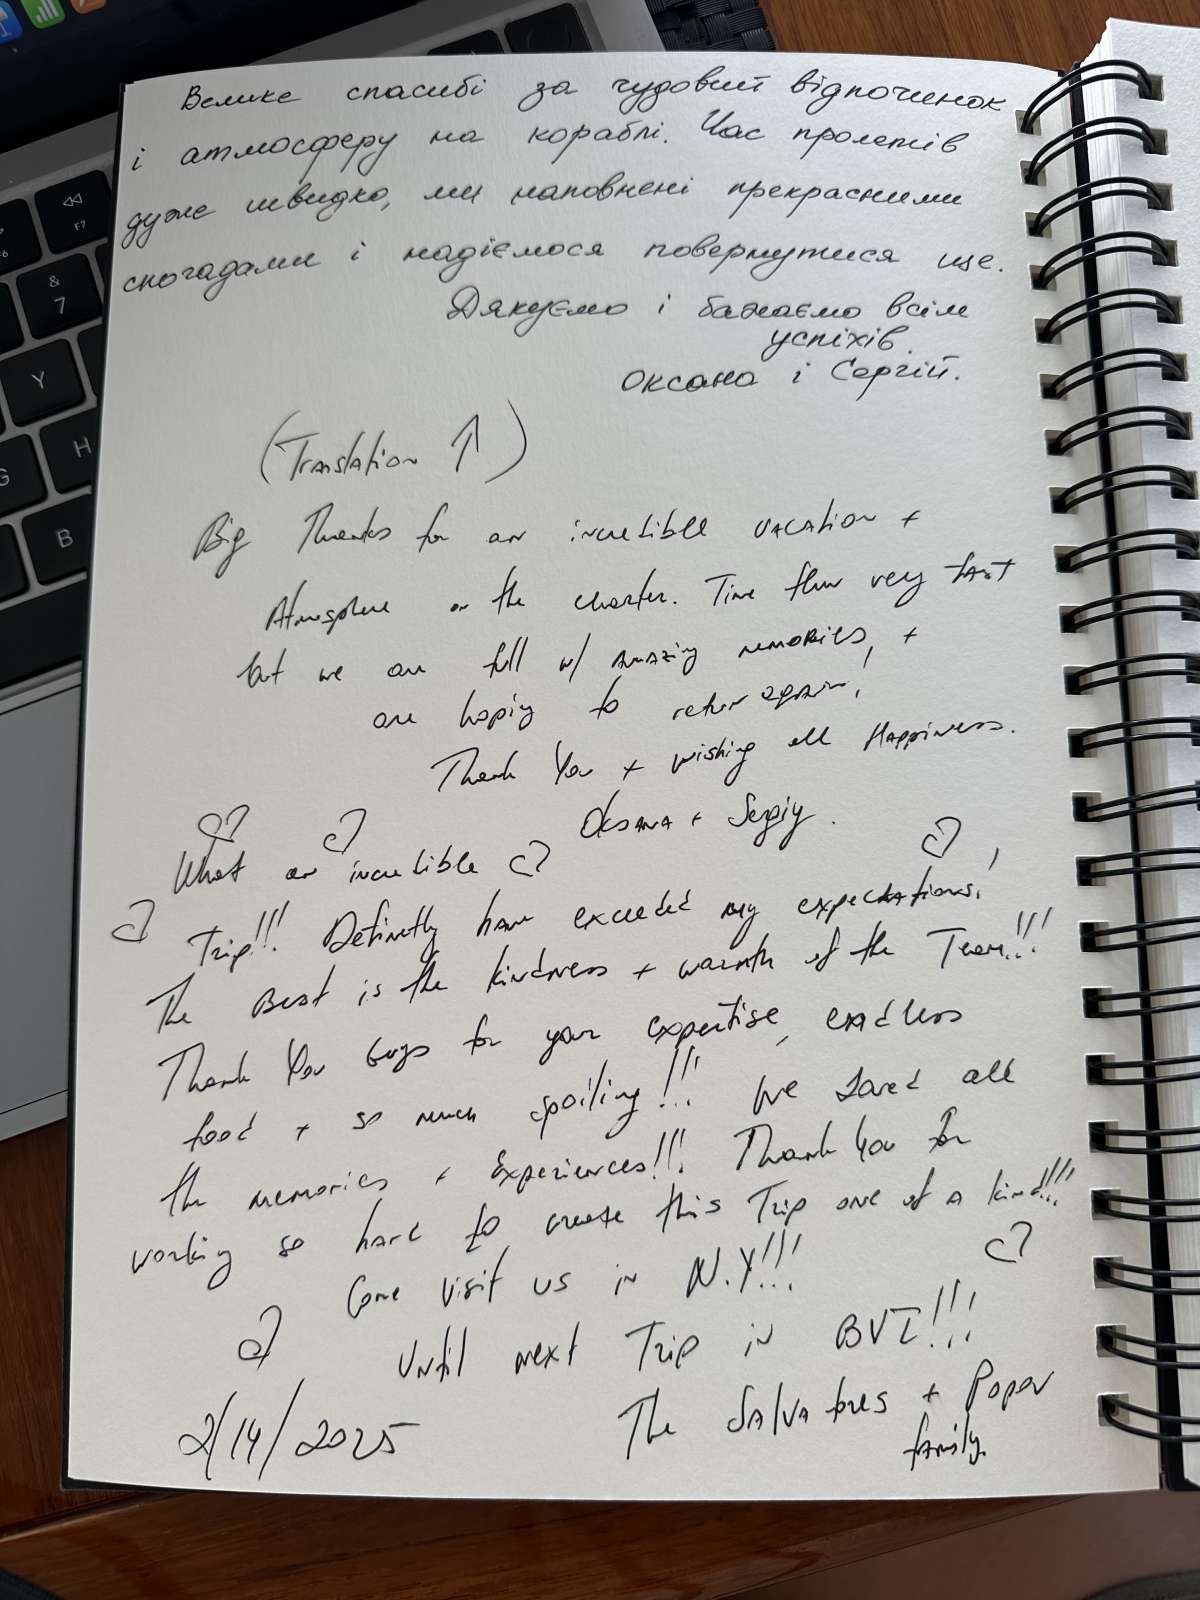 Велике спасибі за чудовий відпочинок
і атмосферу на кораблі. Час пролетів
дуже швидко, ми наповнені прекрасними
спогадами і надіємося повернутися ще.
Дякуємо і бажаємо всім
успіхів.
Оксана і Сергій.
(Translation ↑)
Big Thanks for an incredible vacation +
Atmosphere on the charter. Time flew very fast
but we are full w/ amazing memories, +
are hoping to return again!
Thank You + wishing all Happiness.
Oksana + Sergiy.
What an incredible
Trip!!! Definetly have exceeded my expectations!
The Best is the kindness + warmth of the Team!!!
Thank You Guys for your expertise, endless
food + so much spoiling!!! We Loved all
the memories + Experiences!!! Thank You for
working so hard to create this Trip one of a kind!!!
Come visit us in N.Y!!!
Until next Trip in BVI!!!
The Salvatores + Popov
family.
2/14/2025
&
7
F7
Y
H
G
B